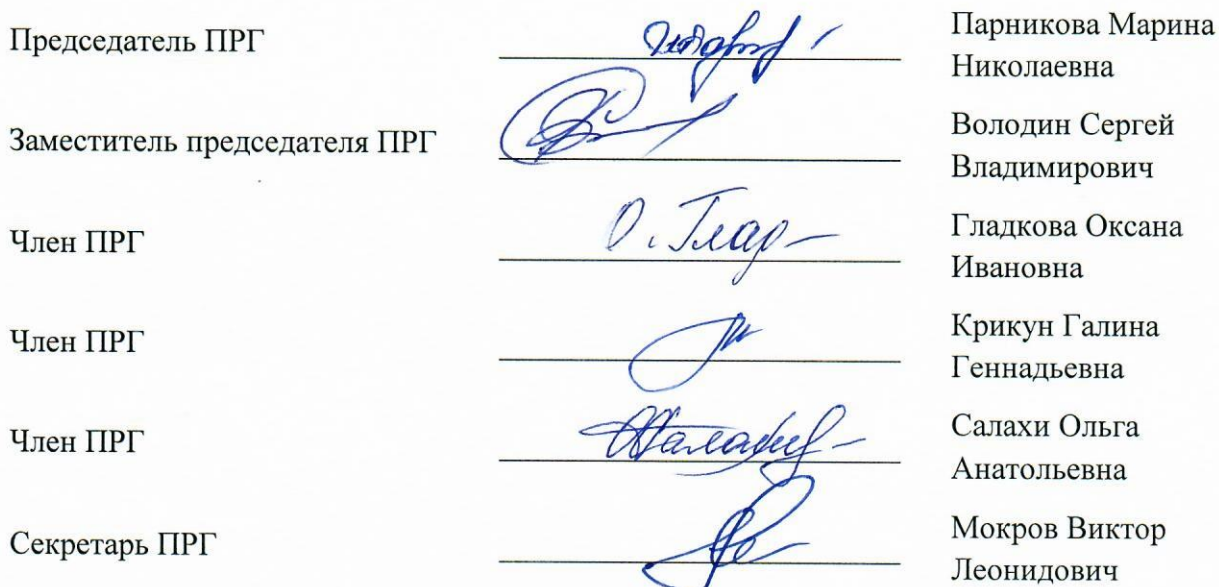 Председатель ПРГ
Парникова Марина
Николаевна
Заместитель председателя ПРГ
Володин Сергей
Владимирович
Член ПРГ
О. Глад
Гладкова Оксана
Ивановна
Член ПРГ
Крикун Галина
Геннадьевна
Член ПРГ
Салахи Ольга
Анатольевна
Секретарь ПРГ
Мокров Виктор
Леонидович